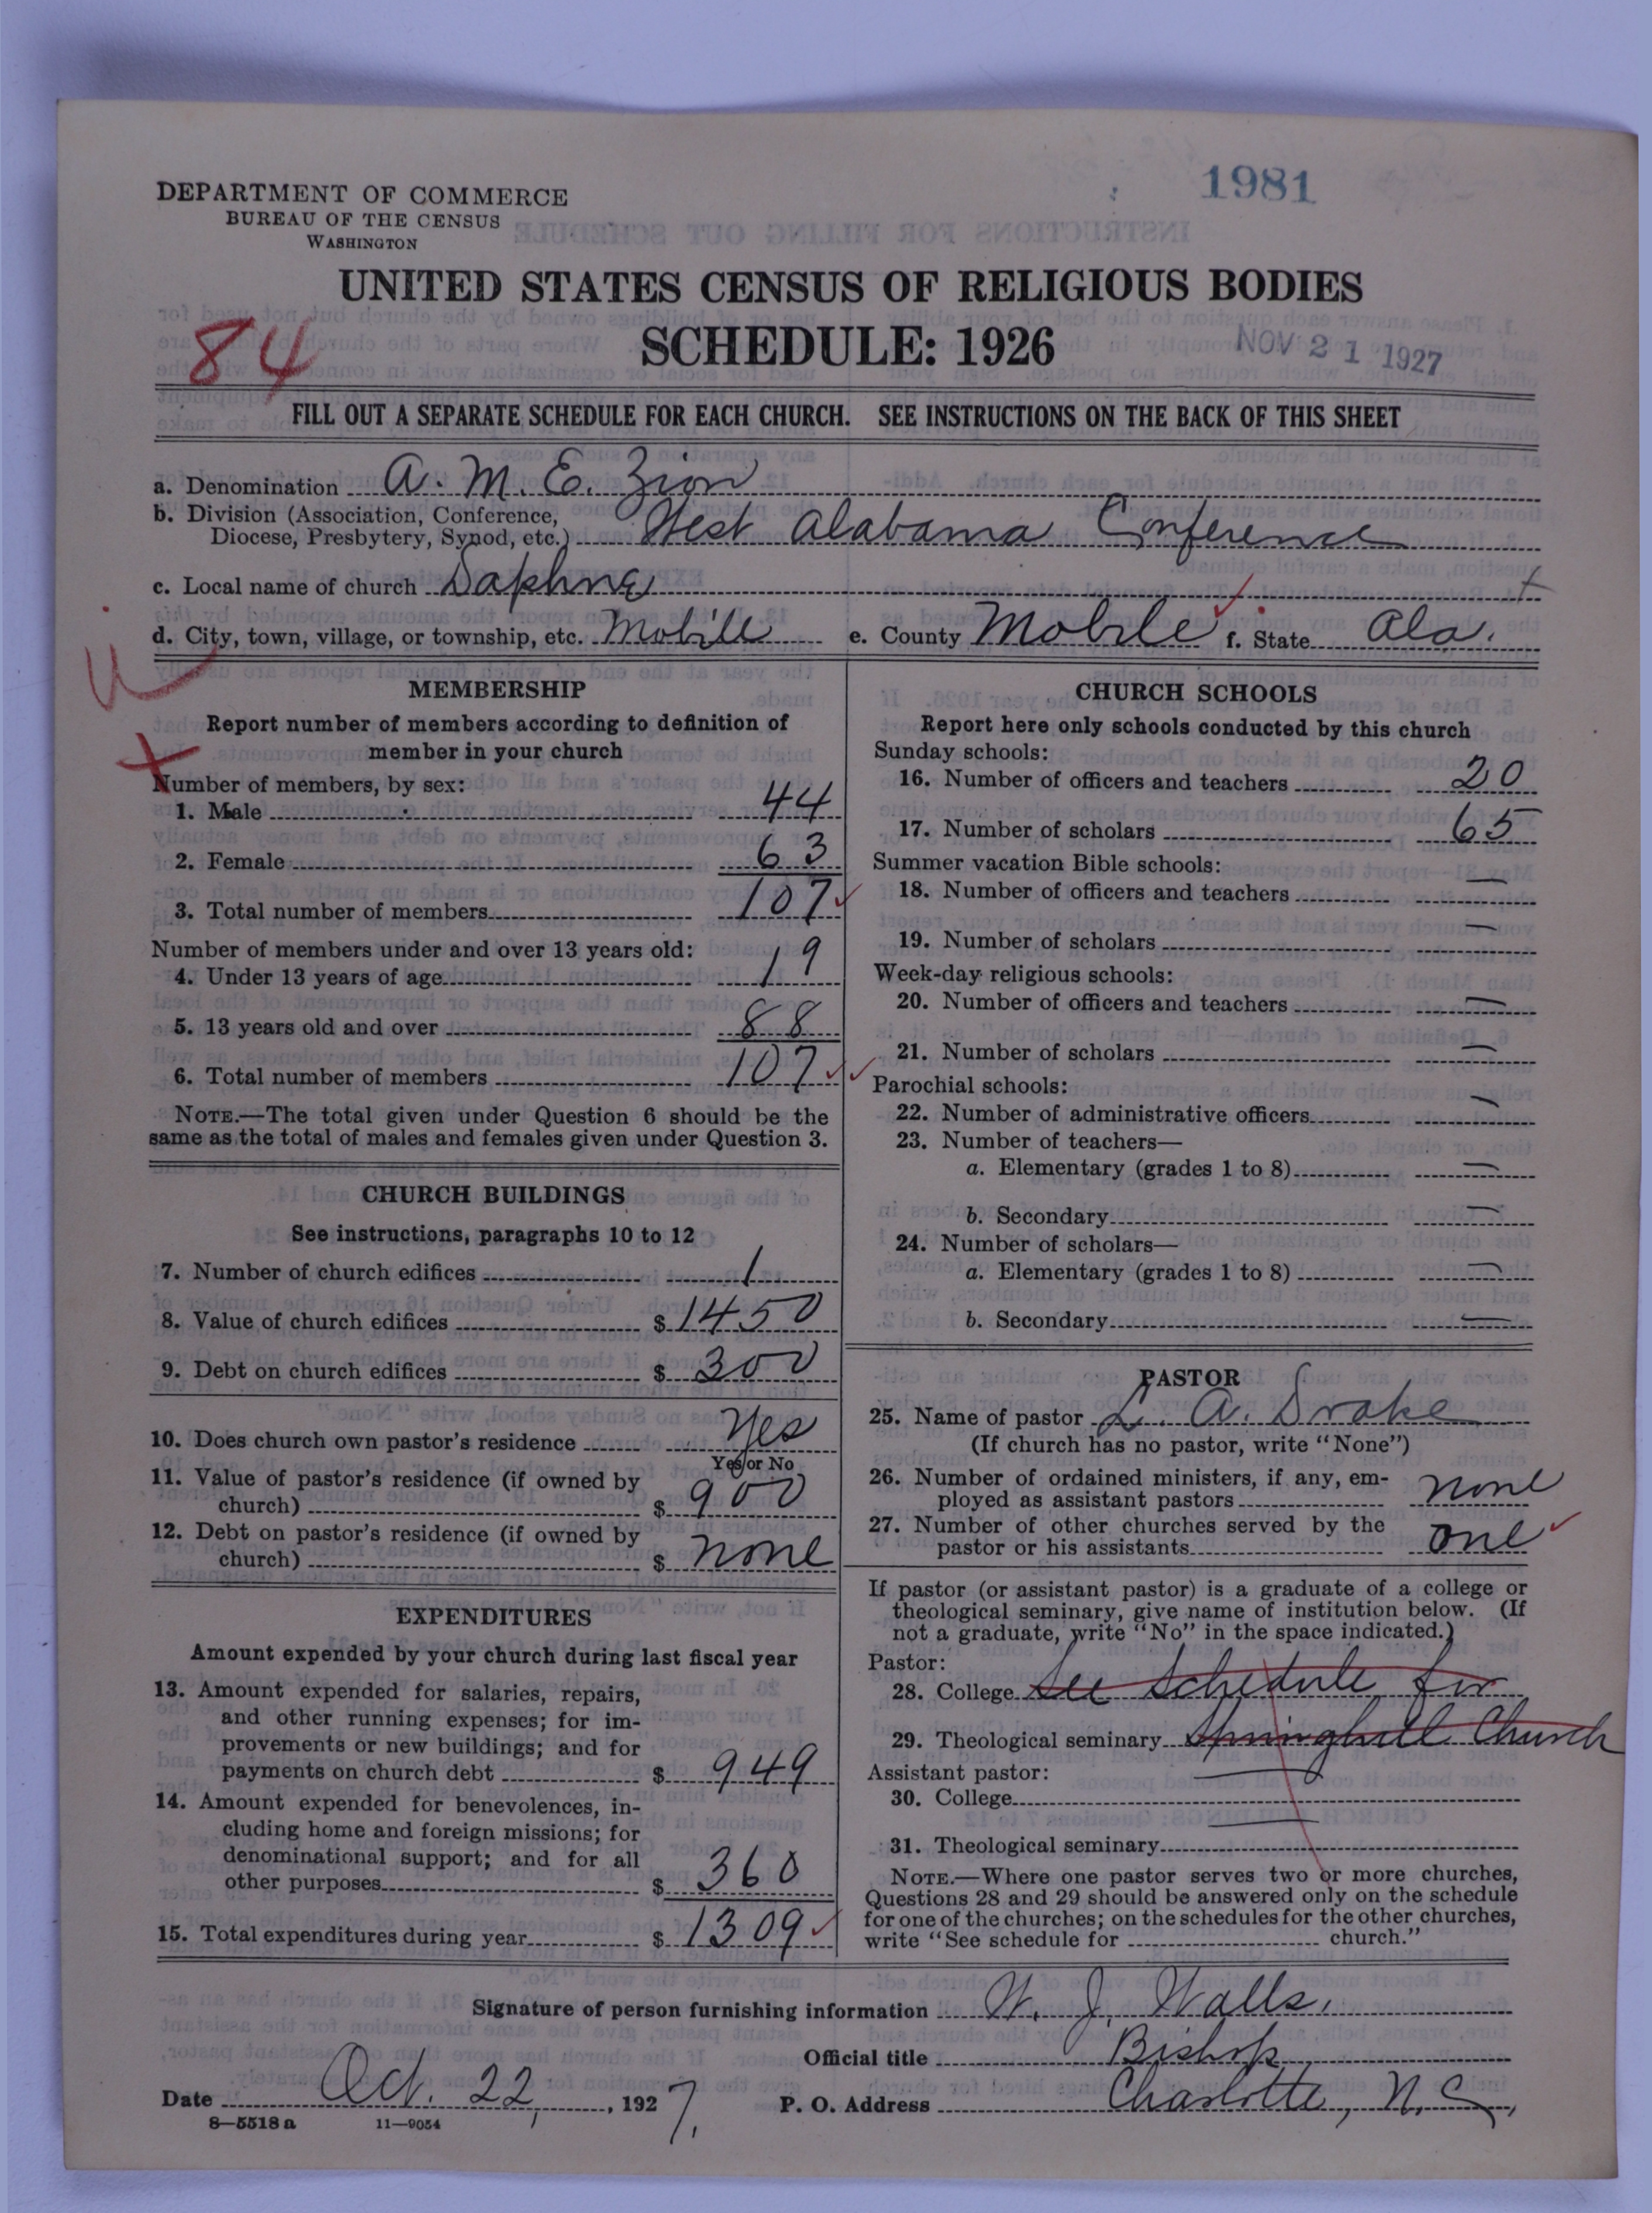 1981
DEPARTMENT OF COMMERCE
BUREAU OF THE CENSUS
WASHINGTON
UNITED STATES CENSUS OF RELIGIOUS BODIES
84
SCHEDULE: 1926
NOV 21 1927
FILL OUT A SEPARATE SCHEDULE FOR EACH CHURCH. SEE INSTRUCTIONS ON THE BACK OF THIS SHEET
a. Denomination A. M. E. Zion
b. Division (Association, Conference,
Diocese, Presbytery, Synod, etc.) West Alabama Conference
c. Local name of church Daphne
d. City, town, village, or township, etc. Mobile e. County Mobile f. State Ala.
MEMBERSHIP
Report number of members according to definition of
member in your church
Number of members, by sex:
1. Male 44
2. Female 63
3. Total number of members 107
Number of members under and over 13 years old:
4. Under 13 years of age 19
5. 13 years old and over 88
6. Total number of members 107
NOTE.—The total given under Question 6 should be the
same as the total of males and females given under Question 3.
CHURCH BUILDINGS
See instructions, paragraphs 10 to 12
7. Number of church edifices 1
8. Value of church edifices $ 1450
9. Debt on church edifices $ 300
10. Does church own pastor's residence Yes
Yes or No
11. Value of pastor's residence (if owned by
church) $ 900
12. Debt on pastor's residence (if owned by
church) $ none
EXPENDITURES
Amount expended by your church during last fiscal year
13. Amount expended for salaries, repairs,
and other running expenses; for im-
provements or new buildings; and for
payments on church debt $ 949
14. Amount expended for benevolences, in-
cluding home and foreign missions; for
denominational support; and for all
other purposes $ 360
15. Total expenditures during year $ 1309
CHURCH SCHOOLS
Report here only schools conducted by this church
Sunday schools:
16. Number of officers and teachers 20
17. Number of scholars 65
Summer vacation Bible schools:
18. Number of officers and teachers —
19. Number of scholars —
Week-day religious schools:
20. Number of officers and teachers —
21. Number of scholars —
Parochial schools:
22. Number of administrative officers —
23. Number of teachers—
a. Elementary (grades 1 to 8) —
b. Secondary —
24. Number of scholars—
a. Elementary (grades 1 to 8) —
b. Secondary —
PASTOR
25. Name of pastor L. A. Drake
(If church has no pastor, write "None")
26. Number of ordained ministers, if any, em-
ployed as assistant pastors none
27. Number of other churches served by the
pastor or his assistants one
If pastor (or assistant pastor) is a graduate of a college or
theological seminary, give name of institution below. (If
not a graduate, write "No" in the space indicated.)
Pastor:
28. College See Schedule for
29. Theological seminary Springhill Church
Assistant pastor:
30. College
31. Theological seminary
NOTE.—Where one pastor serves two or more churches,
Questions 28 and 29 should be answered only on the schedule
for one of the churches; on the schedules for the other churches,
write "See schedule for church."
Signature of person furnishing information W. J. Walls,
Official title Bishop
Date Oct. 22, 1927, P. O. Address Charlotte, N.C.,
8—5518 a 11—9054